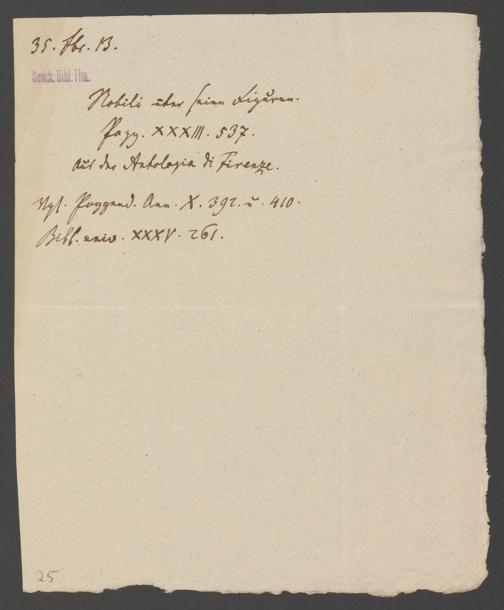 35. Fbr. 13.
Senck. Bibl. Ffm.
Nobili über seine Figuren.
Pogg. XXXIII. 537.
aus der Antologia di Firenze.
Vgl. Poggend. Ann. X. 392. u. 410.
Bibl. univ. XXXV. 261.
25